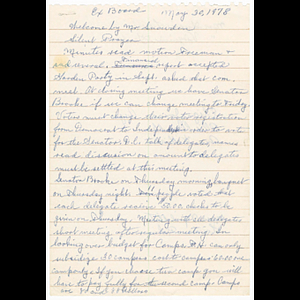 Ex Board May 30, 1978
Welcome by Mr. Snowden
Silent Prayer
Minutes read motion Freeman
and unreal. Financial report accepted
Garden Party in shape asked that com.
meet. At closing meeting we hear Senator
Brooke if we can change meeting to Friday.
Voters must change their voter registration
from Democrat to Independent in order to vote
for the Senator. R.C. talk of delegates, names
read discussion on amount to delegates
must be settled at this meeting.
Senator Brooke on Thursday morning banquet
on Thursday night. people voted that
each delegate receive 50.00 checks to be
given on Thursday. Meeting with all delegates
short meeting after regular meeting. In
looking over budget for Camps R.H. can only
subsidize 30 campers cost to camps 60.00 one
camp only if you choose two camp you will
have to pay fully for the second Camp. Camps
are